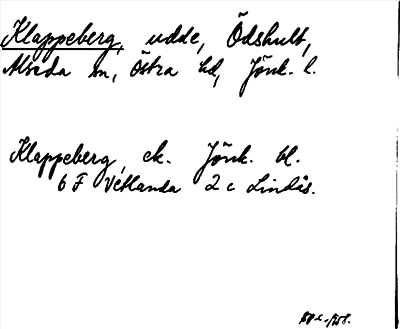 Klappeberg, udde, Ödshult,
Alseda sn, Östra hd, Jönk. l.
Klappeberg, ek. Jönk. bl.
6 F Vetlanda 2 c Lindås.